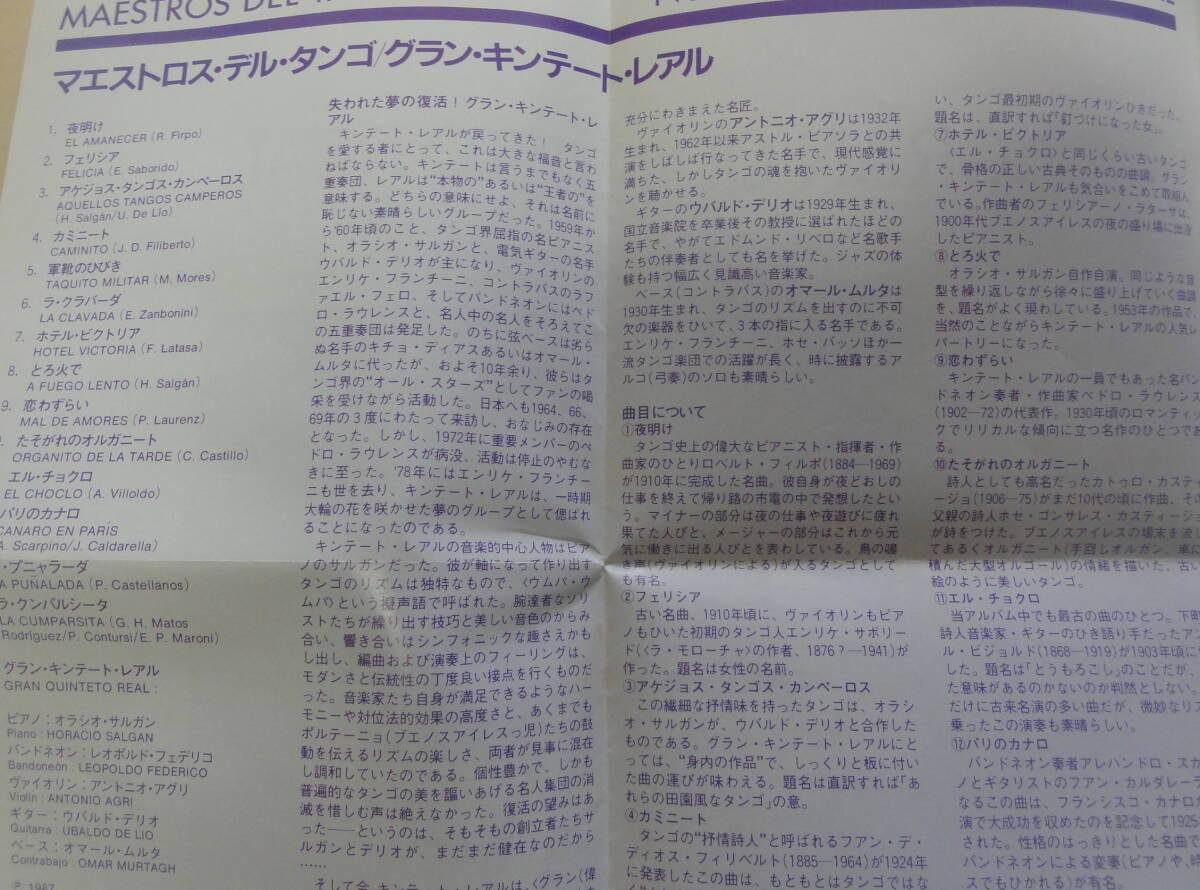 MAESTROS DEL
マエストロス・デル・タンゴ/グラン・キンテート・レアル
1. 夜明け
EL AMANECER (R. Firpo)
2. フェリシア
FELICIA (E. Saborido)
3. アケジョス・タンゴス・カンペーロス
AQUELLOS TANGOS CAMPEROS
(H. Salgán/U. De Llo)
4. カミニート
CAMINITO (J. D. Filiberto)
5. 軍靴のひびき
TAQUITO MILITAR (M. Mores)
6. ラ・クラバーダ
LA CLAVADA (E. Zanbonini)
7. ホテル・ビクトリア
HOTEL VICTORIA (F. Latasa)
8. とろ火で
A FUEGO LENTO (H. Salgán)
9. 恋わずらい
MAL DE AMORES (P. Laurenz)
たそがれのオルガニート
ORGANITO DE LA TARDE (C. Castillo)
エル・チョクロ
EL CHOCLO (A. Villoldo)
パリのカナロ
CANARO EN PARIS
A. Scarpino/J. Caldarella)
・プニャラーダ
A PUÑALADA (P. Castellanos)
ラ・クンパルシータ
LA CUMPARSITA (G. H. Matos
Rodríguez/P. Contursi/E. P. Maroni)
グラン・キンテート・レアル
GRAN QUINTETO REAL :
ピアノ：オラシオ・サルガン
Piano : HORACIO SALGAN
バンドネオン：レオポルド・フェデリコ
Bandoneón : LEOPOLDO FEDERICO
ヴァイオリン：アントニオ・アグリ
Violín : ANTONIO AGRI
ギター：ウバルド・デリオ
Guitarra : UBALDO DE LIO
ベース：オマール・ムルタ
Contrabajo : OMAR MURTAGH
P. 1987
失われた夢の復活！グラン・キンテート・レ
アル
キンテート・レアルが戻ってきた！ タンゴ
を愛する者にとって、これは大きな福音と言わ
ねばならない。キンテートは言うまでもなく五
重奏団、レアルは“本物の”あるいは“王者の”を
意味する。どちらの意味にせよ、それは名前に
恥じない素晴らしいグループだった。1959年か
ら'60年頃のこと、タンゴ界屈指の名ピアニス
ト、オラシオ・サルガンと、電気ギターの名手
ウバルド・デリオが主になり、ヴァイオリンの
エンリケ・フランチーニ、コントラバスのラフ
ァエル・フェロ、そしてバンドネオンにはペド
ロ・ラウレンスと、名人中の名人をそろえてこ
の五重奏団は発足した。のちに弦ベースは劣ら
ぬ名手のキチョ・ディアスあるいはオマール・
ムルタに代ったが、およそ10年余り、彼らはタ
ンゴ界の“オール・スターズ”としてファンの喝
采を受けながら活動した。日本へも1964、66、
69年の3度にわたって来訪し、おなじみの存在
となった。しかし、1972年に重要メンバーのペ
ドロ・ラウレンスが病没、活動は停止のやむな
きに至った。'78年にはエンリケ・フランチー
ニも世を去り、キンテート・レアルは、一時期
大輪の花を咲かせた夢のグループとして偲ばれ
ることになったのである。
キンテート・レアルの音楽的中心人物はピア
ノのサルガンだった。彼が軸になって作り出す
タンゴのリズムは独特なもので、〈ウムパ・ウ
ムパ〉という擬声語で呼ばれた。腕達者なソリ
ストたちが繰り出す技巧と美しい音色のからみ
合い、響き合いはシンフォニックな趣さえかも
し出し、編曲および演奏上のフィーリングは、
モダンさと伝統性の丁度良い接点を行くものだ
った。音楽家たち自身が満足できるようなハー
モニーや対位法的効果の高度さと、あくまでも
ポルテーニョ(ブエノスアイレスっ児)たちの鼓
動を伝えるリズムの楽しさ、両者が見事に混在
し調和していたのである。個性豊かで、しかも
普遍的なタンゴの美を謳いあげる名人集団の消
滅を惜しむ声は絶えなかった。復活の望みはあ
った――というのは、そもそもの創立者たちサ
ルガンとデリオが、まだまだ健在なのだから
……
そして今、キンテート・レアルは、〈グラン(偉
充分にわきまえた名匠。
ヴァイオリンのアントニオ・アグリは1932年
生まれ、1962年以来アストル・ピアソラとの共
演をしばしば行なってきた名手で、現代感覚に
満ちた、しかしタンゴの魂を抱いたヴァイオリ
ンを聴かせる。
ギターのウバルド・デリオは1929年生まれ、
国立音楽院を卒業後その教授に選ばれたほどの
名手で、やがてエドムンド・リベロなど名歌手
たちの伴奏者としても名を挙げた。ジャズの体
験も持つ幅広く見識高い音楽家。
ベース(コントラバス)のオマール・ムルタは
1930年生まれ、タンゴのリズムを出すのに不可
欠の楽器をひいて、3本の指に入る名手である。
エンリケ・フランチーニ、ホセ・バッソほか一
流タンゴ楽団での活躍が長く、時に披露するア
ルコ(弓奏)のソロも素晴らしい。
曲目について
①夜明け
タンゴ史上の偉大なピアニスト・指揮者・作
曲家のひとりロベルト・フィルポ(1884―1969)
が1910年に完成した名曲。彼自身が夜どおしの
仕事を終えて帰り路の市電の中で発想したとい
う。マイナーの部分は夜の仕事や夜遊びに疲れ
果てた人びと、メージャーの部分はこれから元
気に働きに出る人びとを表わしている。鳥の囀
き声(ヴァイオリンによる)が入るタンゴとして
も有名。
②フェリシア
古い名曲、1910年頃に、ヴァイオリンもピア
ノもひいた初期のタンゴ人エンリケ・サボリー
ド(〈ラ・モローチャ〉の作者、1876？―1941)が
作った。題名は女性の名前。
③アケジョス・タンゴス・カンペーロス
この繊細な抒情味を持ったタンゴは、オラシ
オ・サルガンが、ウバルド・デリオと合作した
ものである。グラン・キンテート・レアルにと
っては、“身内の作品”で、しっくりと板に付い
た曲の運びが味わえる。題名は直訳すれば「あ
れらの田園風なタンゴ」の意。
④カミニート
タンゴの“抒情詩人”と呼ばれるフアン・デ・
ディオス・フィリベルト(1885―1964)が1924年
に発表したこの曲は、もともとはタンゴではな
い、タンゴ最初期のヴァイオリンひきだった。
題名は、直訳すれば「釘づけになった女」。
⑦ホテル・ビクトリア
〈エル・チョクロ〉と同じくらい古いタンゴ
で、骨格の正しい古典そのものの曲調。グラン
・キンテート・レアルも気合いをこめて取組ん
でいる。作曲者のフェリシアーノ・ラターサは、
1900年代ブエノスアイレスの夜の盛り場に出没
したピアニスト。
⑧とろ火で
オラシオ・サルガン自作自演。同じような音
型を繰り返しながら徐々に盛り上げていく曲調
を、題名がよく現わしている。1953年の作品で、
当然のことながらキンテート・レアルの人気レ
パートリーになった。
⑨恋わずらい
キンテート・レアルの一員でもあった名バン
ドネオン奏者・作曲家ペドロ・ラウレンス
(1902―72)の代表作。1930年頃のロマンティッ
クでリリカルな傾向に立つ名作のひとつであ
る。
⑩たそがれのオルガニート
詩人としても高名だったカトゥロ・カスティ
ージョ(1906―75)がまだ10代の頃に作曲、その
父親の詩人ホセ・ゴンサレス・カスティージョ
が詩をつけた。ブエノスアイレスの場末を流し
てあるくオルガニート(手回しオルガン、車に
積んだ大型オルゴール)の情緒を描いた、古い
絵のように美しいタンゴ。
⑪エル・チョクロ
当アルバム中でも最古の曲のひとつ。下町
詩人音楽家・ギターのひき語り手だったア
ル・ビジョルド(1868―1919)が1903年に
した。題名は「とうもろこし」のことだが、
た意味があるのかないのか判然としない。
だけに古来名演の多い曲だが、微妙なリズ
乗ったこの演奏も素晴らしい。
⑫パリのカナロ
バンドネオン奏者アレハンドロ・スカ
ノとギタリストのフアン・カルダレーラ
なるこの曲は、フランシスコ・カナロ
演で大成功を収めたのを記念して1925
された。性格のはっきりとした名曲で
バンドネオンによる変奏(ピアノや、
スでもひかれる)が有名。